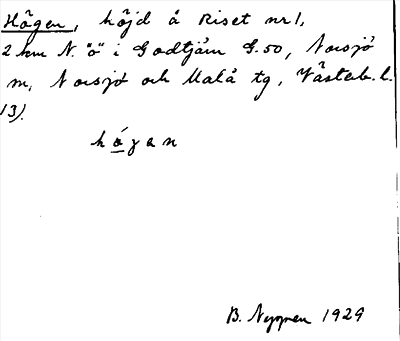 Högen, höjd å Riset nr 1,
2 km N. "ö" i Godtjärn G.50, Norsjö
m, Norsjö och Malå tg, Västerb. l.
13).
hógan
B. Nygren 1929